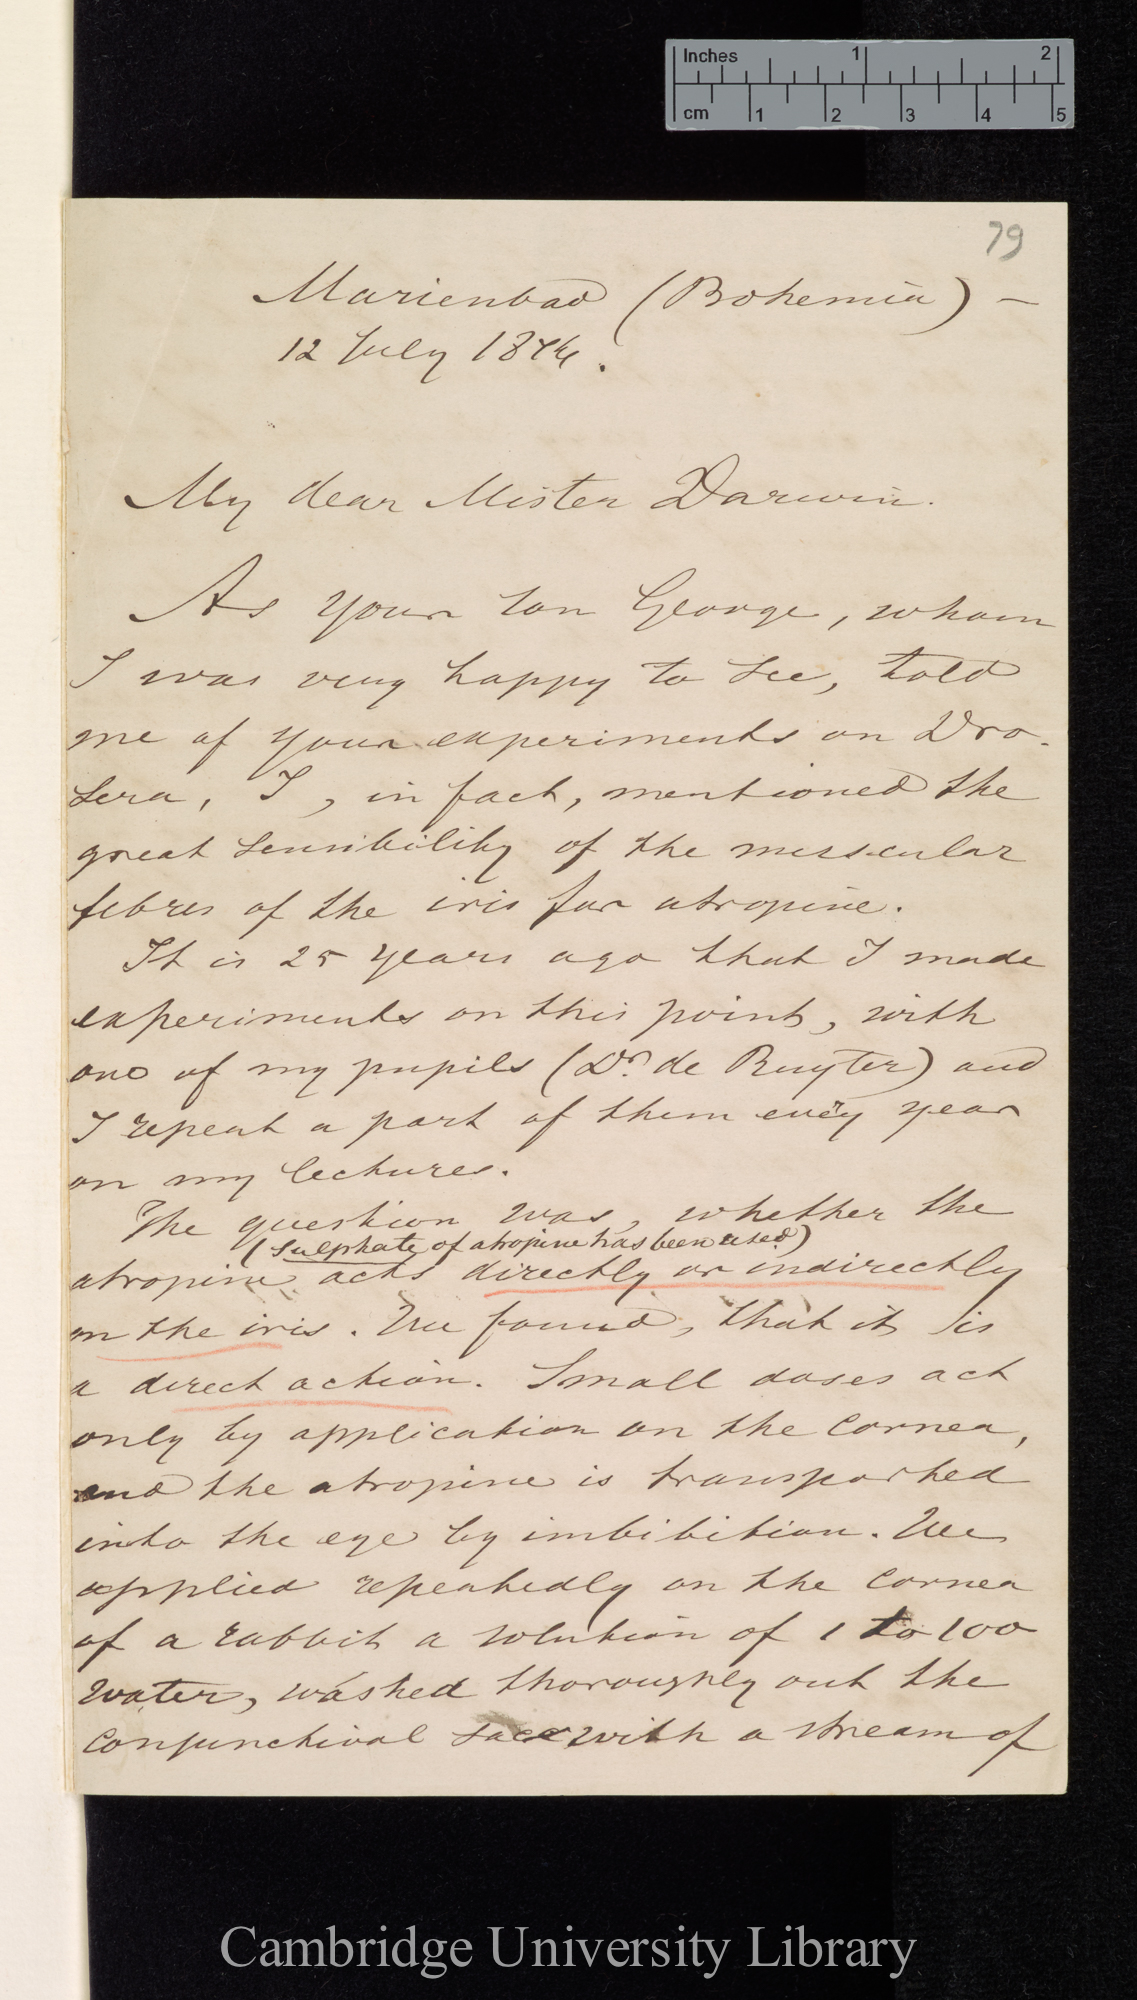 Inches 1 2
cm 1 2 3 4 5
79
Marienbad (Bohemia) —
12 July 1874.
My dear Mister Darwin.
As your son George, whom
I was very happy to see, told
me of your experiments on Dro-
sera, I, in fact, mentioned the
great sensibility of the musscular
fibres of the iris for atropine.
It is 25 years ago that I made
experiments on this point, with
one of my pupils (Dr. de Ruyter) and
I repeat a part of them every year
on my lectures.
The question was, whether the
(sulphate of atropine has been used)
atropine acts directly or indirectly
on the iris. We found, that it is
a direct action. Small doses act
only by application on the cornea,
and the atropine is transported
into the eye by imbibition. We
applied repeatedly on the cornea
of a rabbit a solution of 1 to 100
water, washed thoroughly out the
conjunctival sac with a stream of
Cambridge University Library